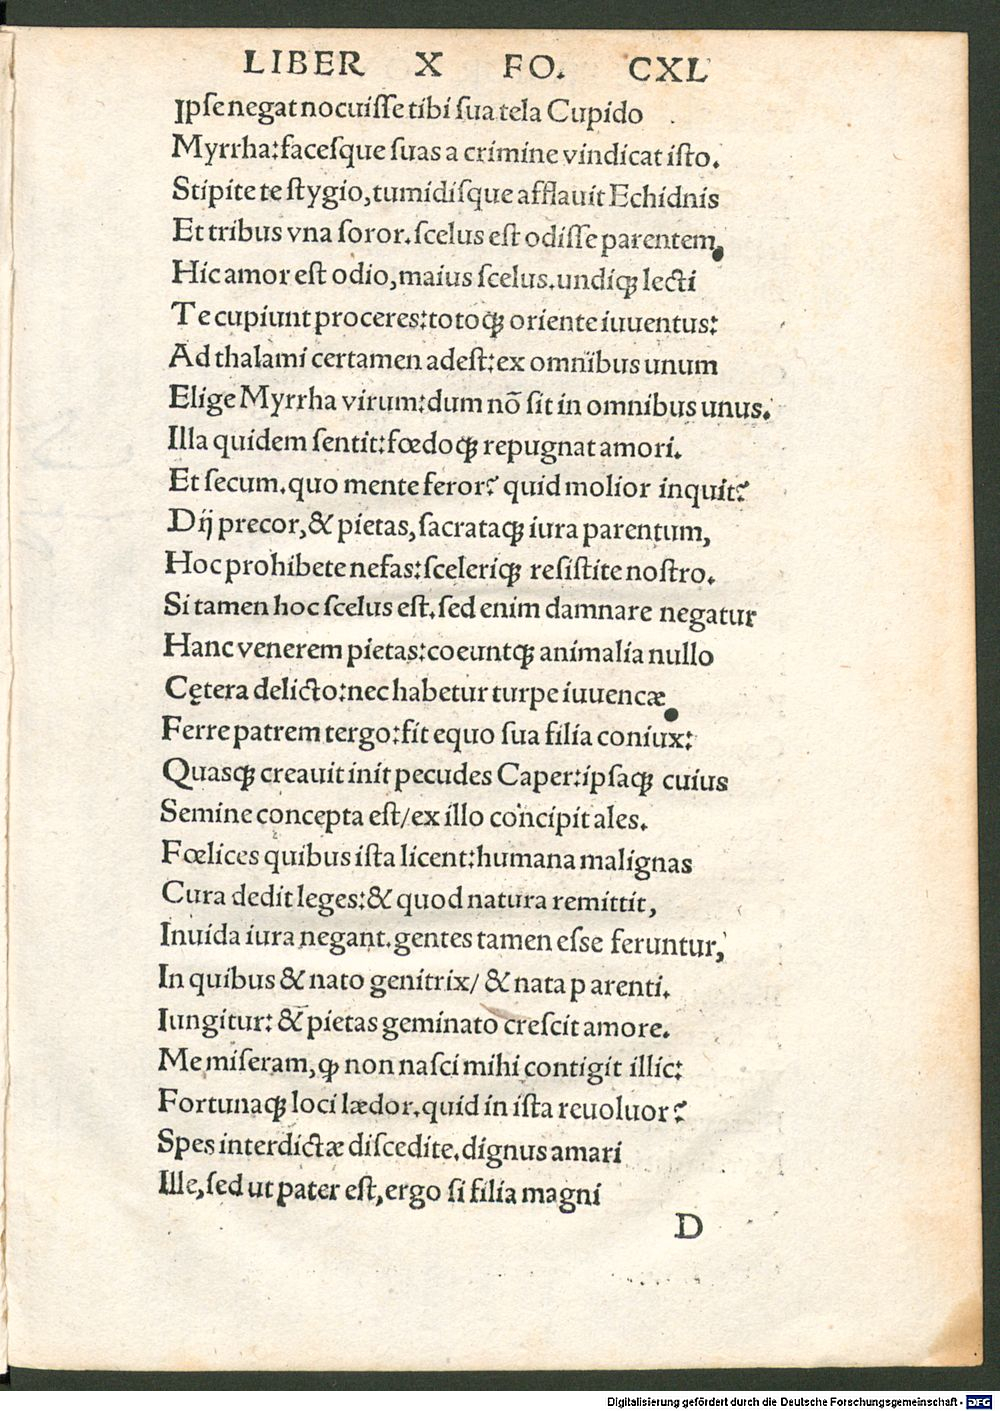 LIBER X FO. CXL
Ipſe negat nocuiſſe tibi ſua tela Cupido
Myrrha: faceſque ſuas a crimine vindicat iſto.
Stipite te ſtygio, tumidiſque afflauit Echidnis
Et tribus vna ſoror. ſcelus eſt odiſſe parentem,
Hic amor eſt odio, maius ſcelus. undiqꝫ lecti
Te cupiunt proceres: totoqꝫ oriente iuuentus:
Ad thalami certamen adeſt: ex omnibus unum
Elige Myrrha virum: dum nō ſit in omnibus unus.
Illa quidem ſentit: fœdoqꝫ repugnat amori.
Et ſecum. quo mente feror? quid molior inquit?
Dij precor, & pietas, ſacrataqꝫ iura parentum,
Hoc prohibete nefas: ſceleriqꝫ reſiſtite noſtro.
Si tamen hoc ſcelus eſt. ſed enim damnare negatur
Hanc venerem pietas: coeuntqꝫ animalia nullo
Cętera delicto: nec habetur turpe iuuencæ
Ferre patrem tergo: fit equo ſua filia coniux:
Quasqꝫ creauit init pecudes Caper: ipſaqꝫ cuius
Semine concepta eſt/ ex illo concipit ales.
Fœlices quibus iſta licent: humana malignas
Cura dedit leges: & quod natura remittit,
Inuida iura negant. gentes tamen eſſe feruntur,
In quibus & nato genitrix/ & nata p arenti.
Iungitur: & pietas geminato creſcit amore.
Me miſeram, ꝙ non naſci mihi contigit illic:
Fortunaqꝫ loci lædor. quid in iſta reuoluor?
Spes interdictæ diſcedite. dignus amari
Ille, ſed ut pater eſt, ergo ſi filia magni
D
Digitalisierung gefördert durch die Deutsche Forschungsgemeinschaft - DFG